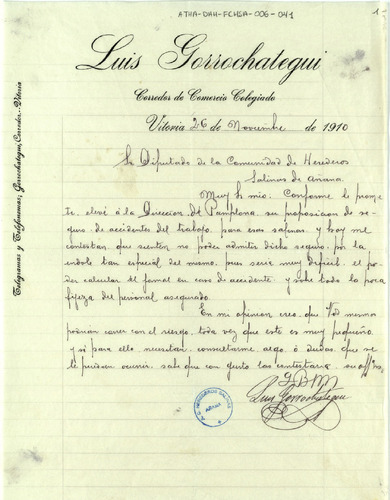 ATHA-DAH-FCHSA-006-041
1-
Luis Gorrochategui
Corredor de Comercio Colegiado
Vitoria 26 de Noviembre de 1910
Telegramas y Telefonemas; Gorrochategui, Corredor.-Vitoria
Sr Diputado de la Comunidad de Herederos
Salinas de Añana.
Muy Sr mio: Conforme le prome
ti, elevé á la Direccion de Pamplona, su proposicion de se
guro de accidentes del trabajo, para esas salinas, y hoy me
contestan, que sienten no poder admitir dicho seguro, por la
indole tan especial del mismo, pues seria muy dificil, el po
der calcular el jornal en caso de accidente, y sobre todo la poca
fijeza del personal asegurado.
En mi opinion creo, que Vds mismos
podrian correr con el riesgo, toda vez que este es muy pequeño,
y si para ello, necesitan consultarme algo, ó dudas, que se
le puedan ocurrir, sabe que con gusto las contestaria, su affmo,
Luis Gorrochategui
HEREDEROS SALINAS
AÑANA